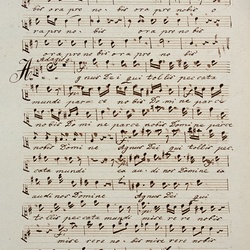 ora pro nobis ora pro nobis
ora pro nobis ora pro nobis
ora pro nobis ora pro nobis
Adagio
Agnus Dei qui tollis peccata
mundi parce nobis Domine parce
nobis Domine parce nobis Domine parce
nobis Domine Agnus Dei qui tollis pec
cata mundi exaudi nos Domine ex
audi nos Domine Agnus Dei qui
tollis peccata mundi miserere nobis
miserere nobis miserere nobis